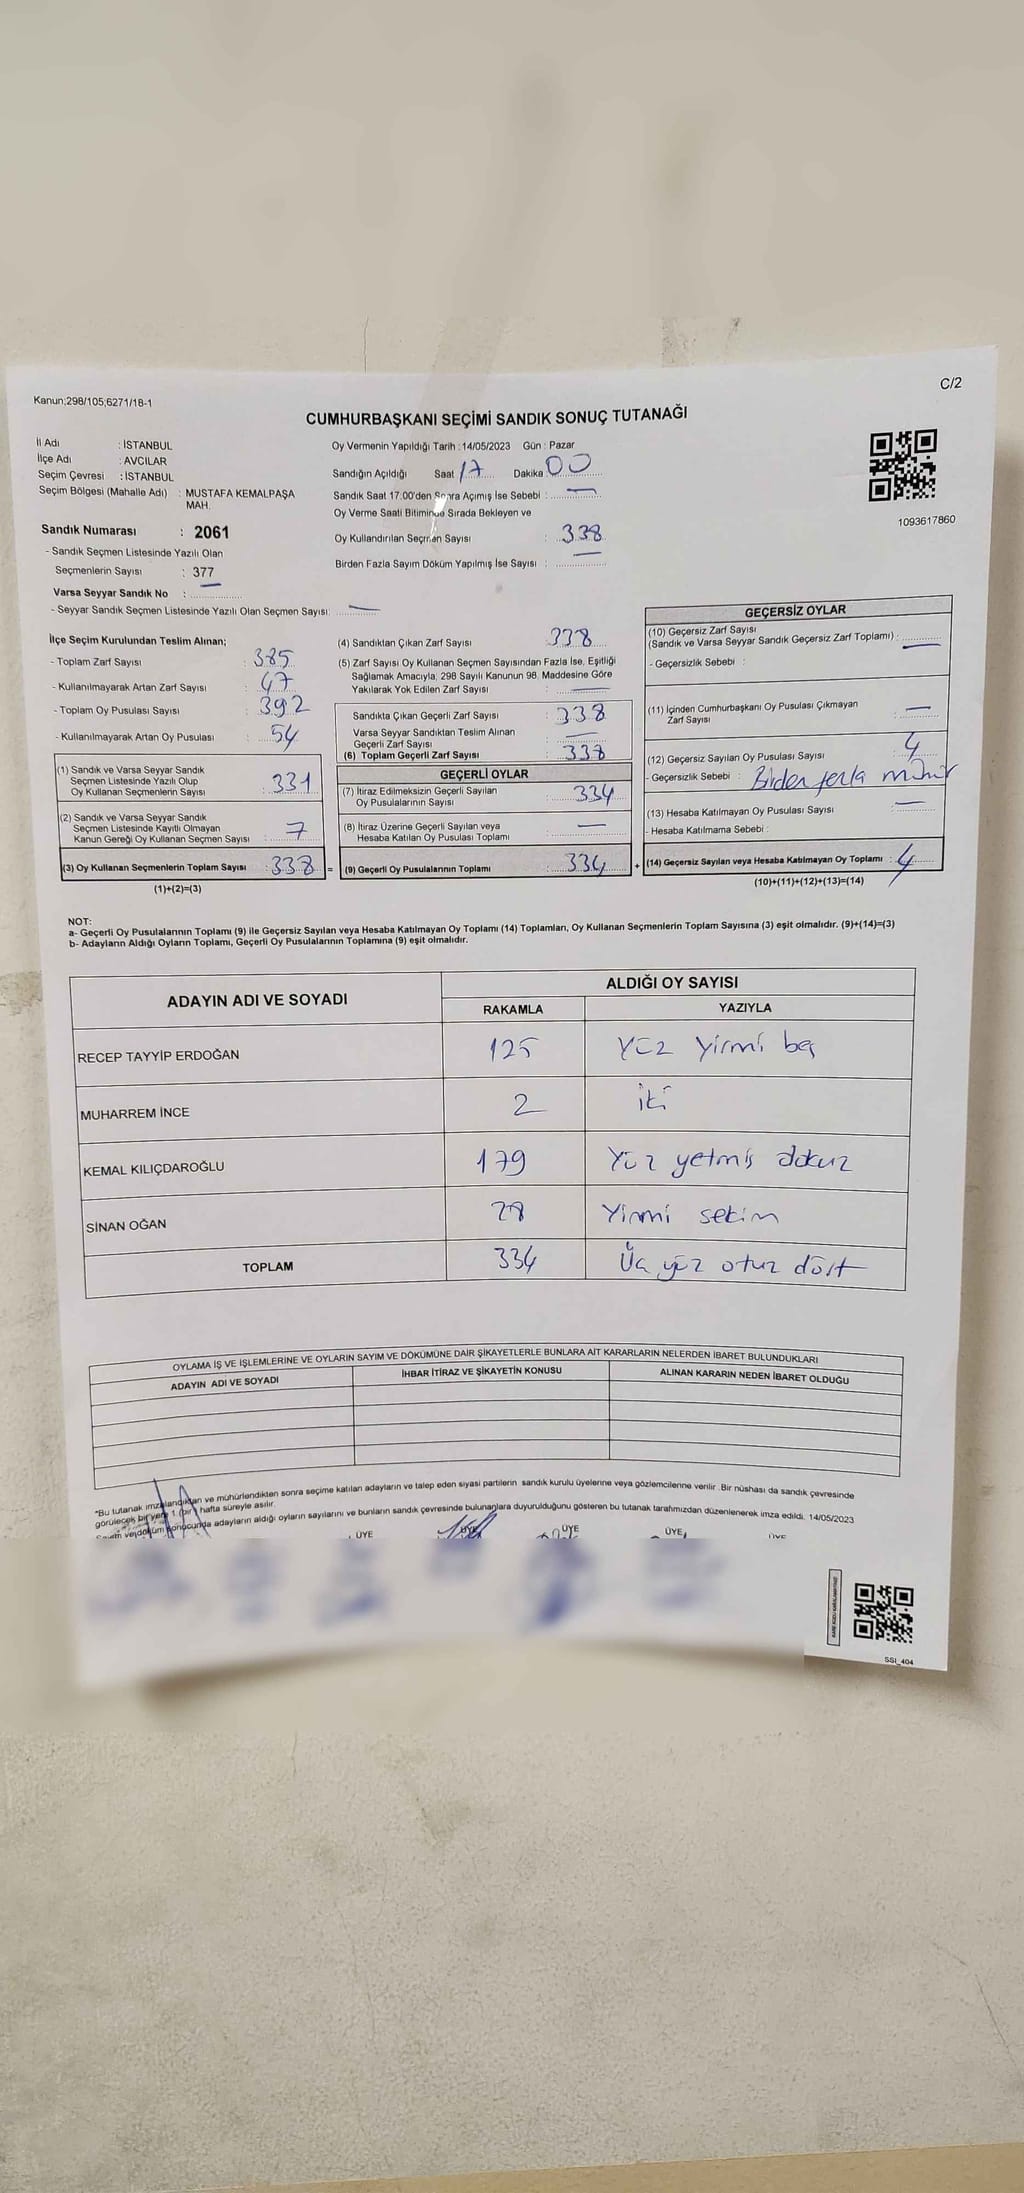 C/2
Kanun;298/105;6271/18-1
CUMHURBAŞKANI SEÇİMİ SANDIK SONUÇ TUTANAĞI
İl Adı : İSTANBUL
İlçe Adı : AVCILAR
Seçim Çevresi : İSTANBUL
Seçim Bölgesi (Mahalle Adı) : MUSTAFA KEMALPAŞA MAH.
Sandık Numarası : 2061
- Sandık Seçmen Listesinde Yazılı Olan
Seçmenlerin Sayısı : 377
Varsa Seyyar Sandık No : —
- Seyyar Sandık Seçmen Listesinde Yazılı Olan Seçmen Sayısı: —
Oy Vermenin Yapıldığı Tarih : 14/05/2023 Gün : Pazar
Sandığın Açıldığı Saat 17 Dakika 00
Sandık Saat 17.00'den Sonra Açımış İse Sebebi : —
Oy Verme Saati Bitiminde Sırada Bekleyen ve
Oy Kullandırılan Seçmen Sayısı : 338
Birden Fazla Sayım Döküm Yapılmış İse Sayısı : —
1093617860
İlçe Seçim Kurulundan Teslim Alınan;
- Toplam Zarf Sayısı : 385
- Kullanılmayarak Artan Zarf Sayısı : 47
- Toplam Oy Pusulası Sayısı : 392
- Kullanılmayarak Artan Oy Pusulası : 54
(1) Sandık ve Varsa Seyyar Sandık
Seçmen Listesinde Yazılı Olup
Oy Kullanan Seçmenlerin Sayısı : 331
(2) Sandık ve Varsa Seyyar Sandık
Seçmen Listesinde Kayıtlı Olmayan
Kanun Gereği Oy Kullanan Seçmen Sayısı : 7
(3) Oy Kullanan Seçmenlerin Toplam Sayısı : 338 =
(1)+(2)=(3)
(4) Sandıktan Çıkan Zarf Sayısı : 338
(5) Zarf Sayısı Oy Kullanan Seçmen Sayısından Fazla İse, Eşitliği
Sağlamak Amacıyla, 298 Sayılı Kanunun 98. Maddesine Göre
Yakılarak Yok Edilen Zarf Sayısı : —
Sandıkta Çıkan Geçerli Zarf Sayısı : 338
Varsa Seyyar Sandıktan Teslim Alınan
Geçerli Zarf Sayısı : —
(6) Toplam Geçerli Zarf Sayısı : 338
GEÇERLİ OYLAR
(7) İtiraz Edilmeksizin Geçerli Sayılan
Oy Pusulalarının Sayısı : 334
(8) İtiraz Üzerine Geçerli Sayılan veya
Hesaba Katılan Oy Pusulası Toplamı : —
(9) Geçerli Oy Pusulalarının Toplamı : 334 +
GEÇERSİZ OYLAR
(10) Geçersiz Zarf Sayısı
(Sandık ve Varsa Seyyar Sandık Geçersiz Zarf Toplamı) : —
- Geçersizlik Sebebi :
(11) İçinden Cumhurbaşkanı Oy Pusulası Çıkmayan
Zarf Sayısı : —
(12) Geçersiz Sayılan Oy Pusulası Sayısı : 4
- Geçersizlik Sebebi : Birden fazla mühür
(13) Hesaba Katılmayan Oy Pusulası Sayısı : —
- Hesaba Katılmama Sebebi :
(14) Geçersiz Sayılan veya Hesaba Katılmayan Oy Toplamı : 4
(10)+(11)+(12)+(13)=(14)
NOT:
a- Geçerli Oy Pusulalarının Toplamı (9) ile Geçersiz Sayılan veya Hesaba Katılmayan Oy Toplamı (14) Toplamları, Oy Kullanan Seçmenlerin Toplam Sayısına (3) eşit olmalıdır. (9)+(14)=(3)
b- Adayların Aldığı Oyların Toplamı, Geçerli Oy Pusulalarının Toplamına (9) eşit olmalıdır.
ADAYIN ADI VE SOYADI ALDIĞI OY SAYISI
RAKAMLA YAZIYLA
RECEP TAYYİP ERDOĞAN 125 Yüz yirmi beş
MUHARREM İNCE 2 iki
KEMAL KILIÇDAROĞLU 179 Yüz yetmiş dokuz
SİNAN OĞAN 28 Yirmi sekiz
TOPLAM 334 Üç yüz otuz dört
OYLAMA İŞ VE İŞLEMLERİNE VE OYLARIN SAYIM VE DÖKÜMÜNE DAİR ŞİKAYETLERLE BUNLARA AİT KARARLARIN NELERDEN İBARET BULUNDUKLARI
ADAYIN ADI VE SOYADI İHBAR İTİRAZ VE ŞİKAYETİN KONUSU ALINAN KARARIN NEDEN İBARET OLDUĞU
*Bu tutanak imzalandıktan ve mühürlendikten sonra seçime katılan adayların ve talep eden siyasi partilerin sandık kurulu üyelerine veya gözlemcilerine verilir. Bir nüshası da sandık çevresinde
görülecek bir yere 1 (bir) hafta süreyle asılır.
Sayım ve döküm sonucunda adayların aldığı oyların sayılarını ve bunların sandık çevresinde bulunanlara duyurulduğunu gösteren bu tutanak tarafımızdan düzenlenerek imza edildi. 14/05/2023
ÜYE ÜYE ÜYE ÜYE ÜYE
SSI_404